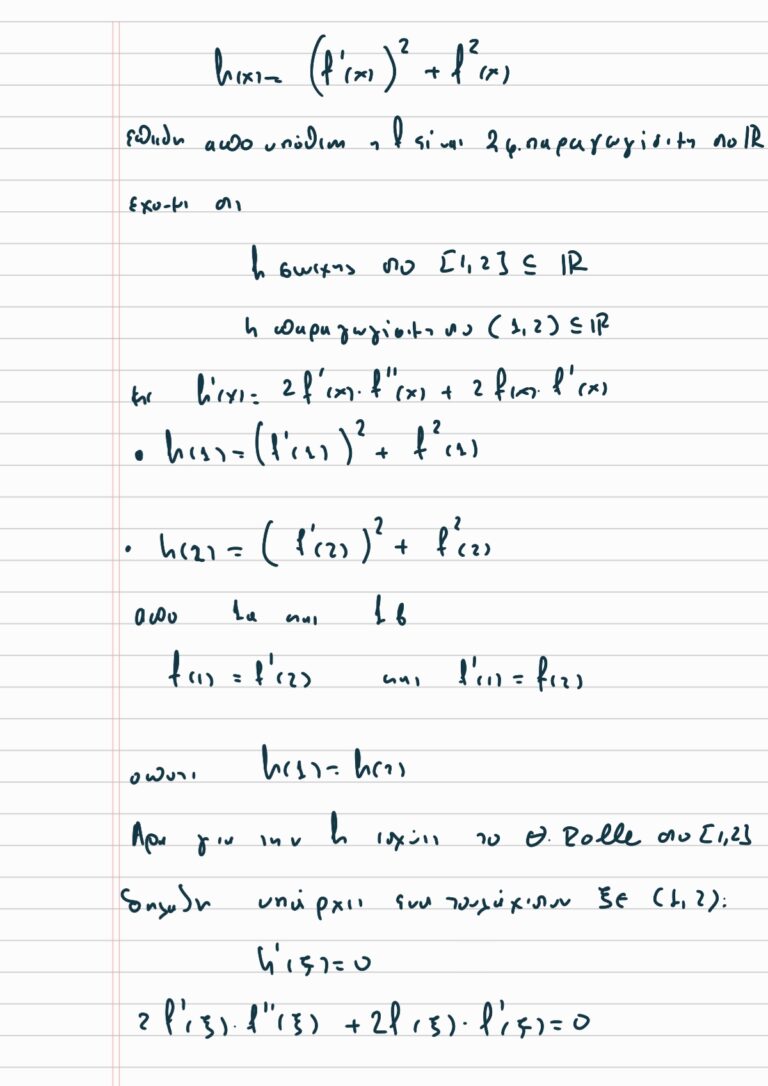 h(x) = (f'(x))² + f²(x)
επειδη απο υποθεση η f ειναι 2 φ. παραγωγισιμη στο ℝ
εχουμε οτι
h συνεχης στο [1,2] ⊆ ℝ
h παραγωγισιμη στο (1,2) ⊆ ℝ
με h'(x) = 2f'(x)·f''(x) + 2f(x)·f'(x)
• h(1) = (f'(1))² + f²(1)
• h(2) = (f'(2))² + f²(2)
απο 1α και 1β
f(1) = f'(2) και f'(1) = f(2)
οποτε h(1) = h(2)
Αρα για την h ισχύει το Θ. Rolle στο [1,2]
δηλαδη υπάρχει ενα τουλάχιστον ξ∈ (1,2):
h'(ξ) = 0
2f'(ξ)·f''(ξ) + 2f(ξ)·f'(ξ) = 0